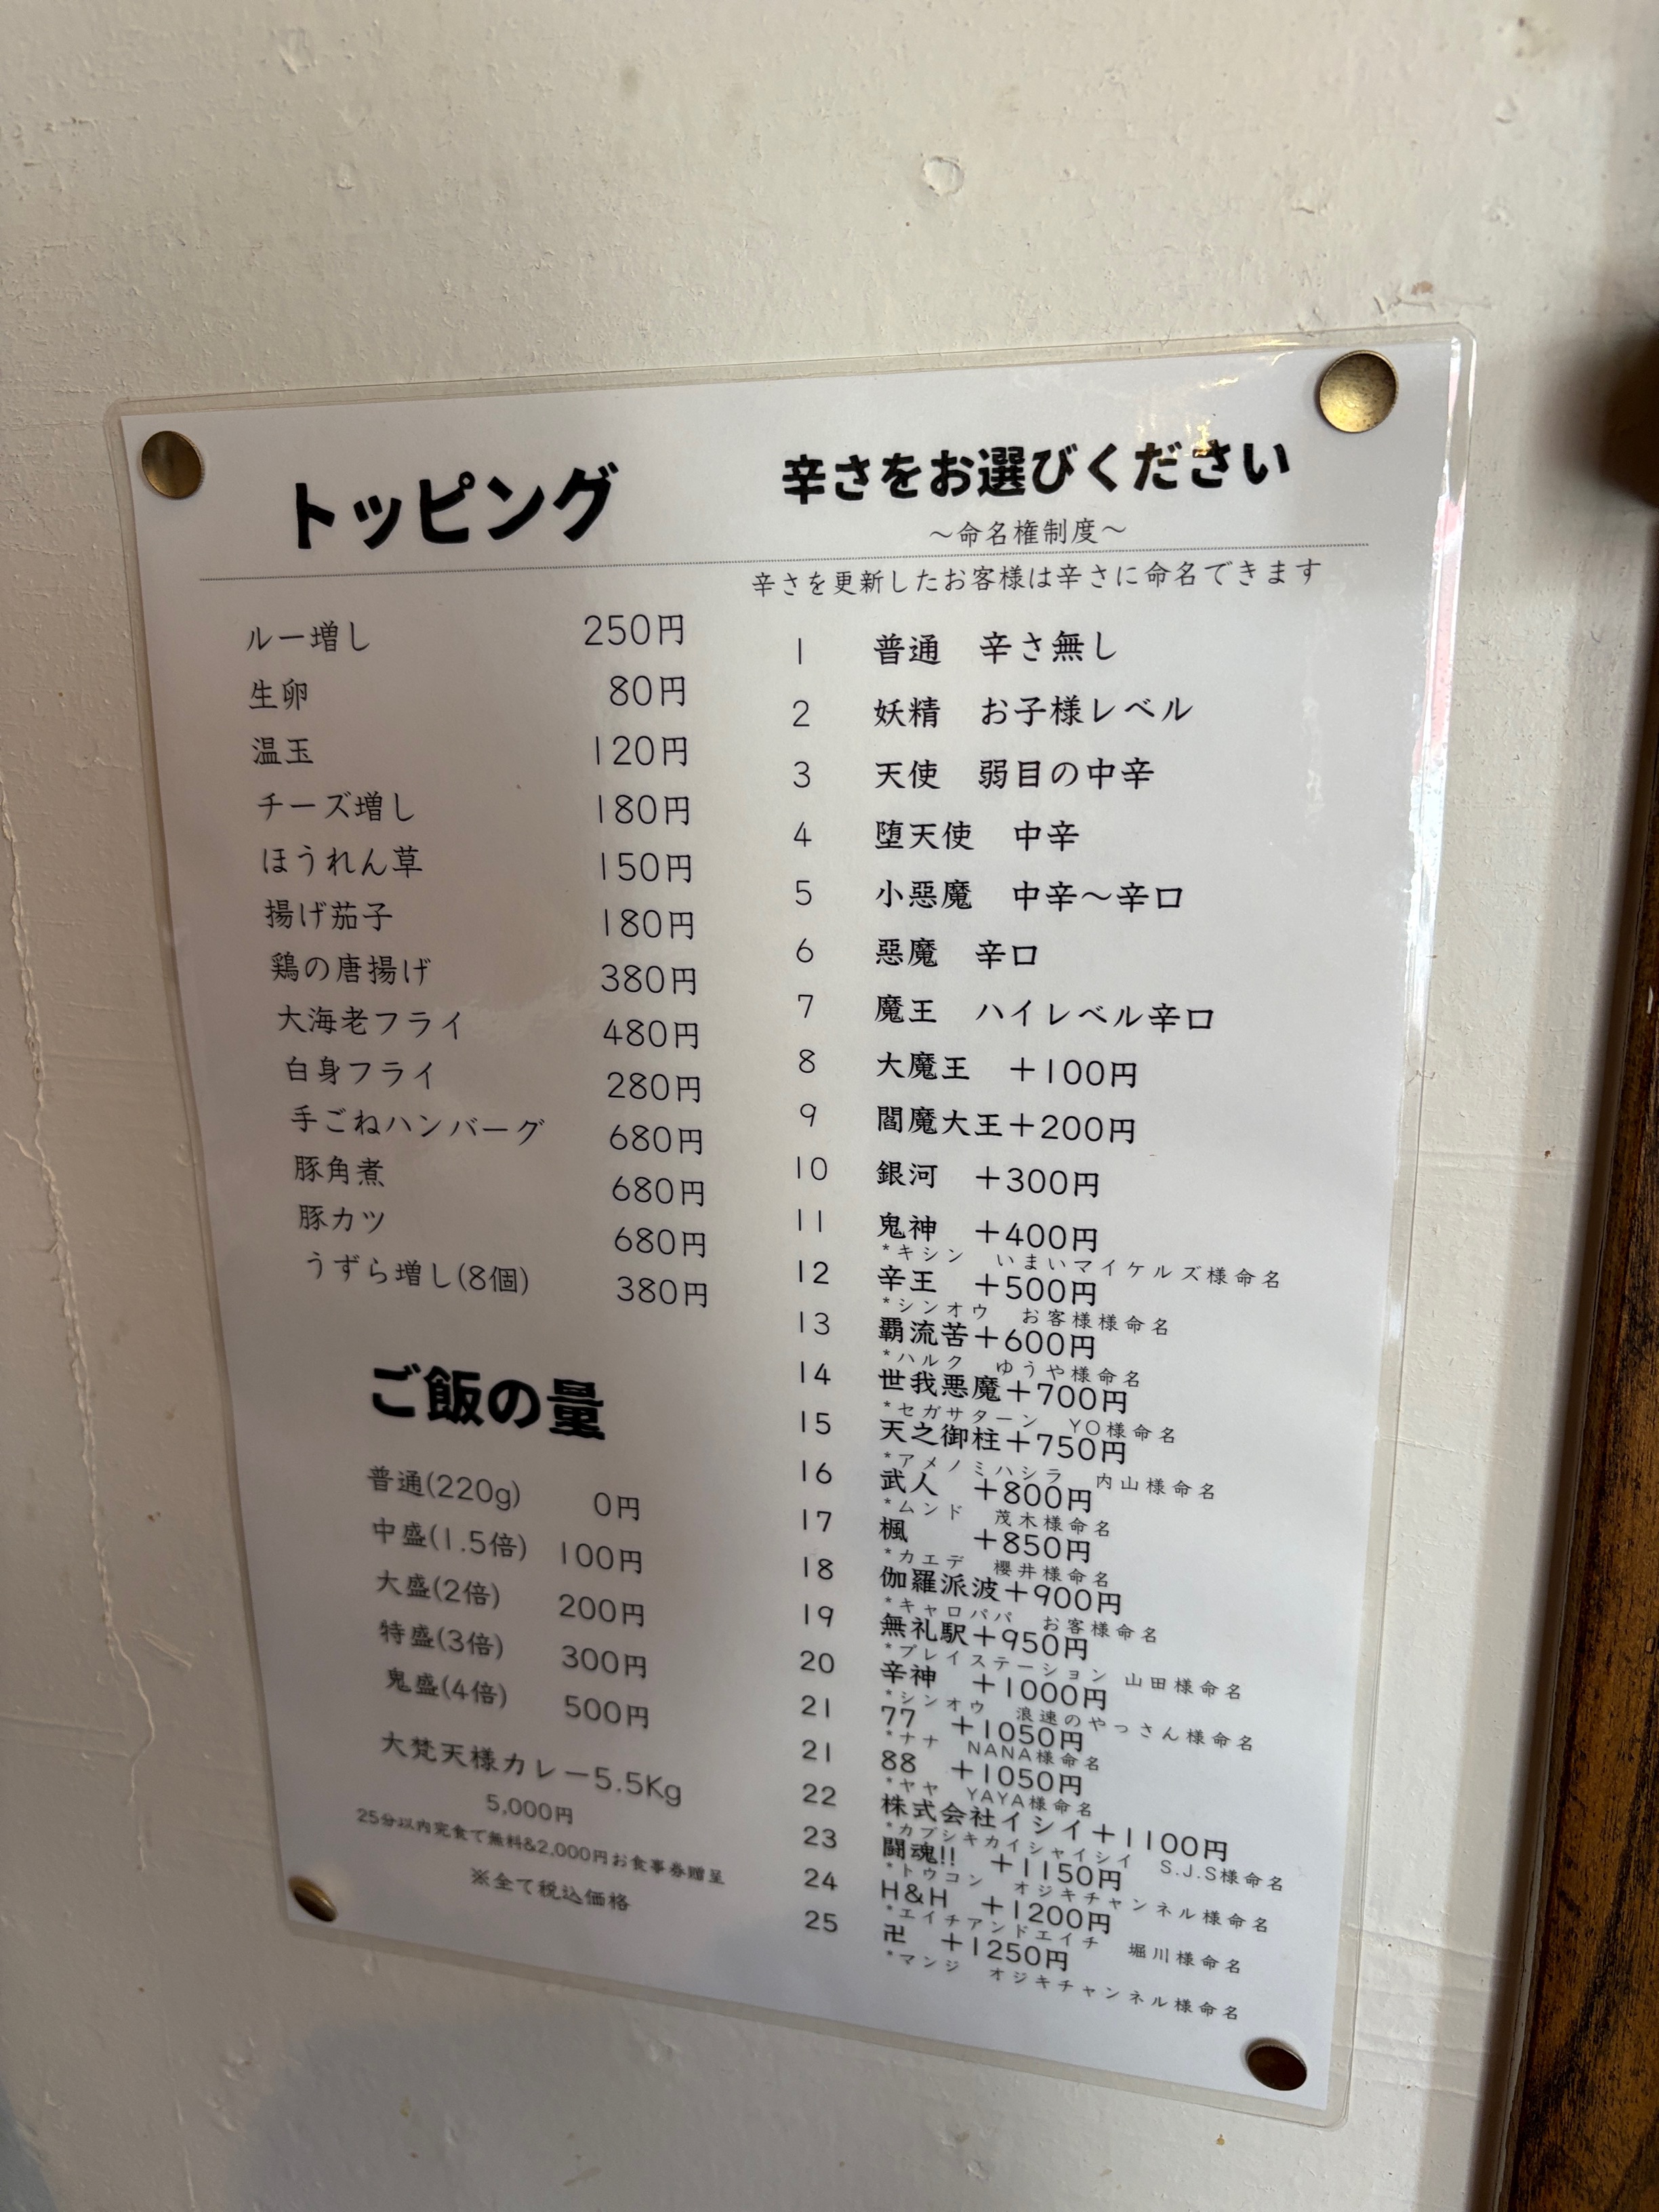 トッピング
ルー増し 250円
生卵 80円
温玉 120円
チーズ増し 180円
ほうれん草 150円
揚げ茄子 180円
鶏の唐揚げ 380円
大海老フライ 480円
白身フライ 280円
手ごねハンバーグ 680円
豚角煮 680円
豚カツ 680円
うずら増し(8個) 380円
ご飯の量
普通(220g) 0円
中盛(1.5倍) 100円
大盛(2倍) 200円
特盛(3倍) 300円
鬼盛(4倍) 500円
大梵天様カレー5.5Kg
5,000円
25分以内完食で無料&2,000円お食事券贈呈
※全て税込価格
辛さをお選びください
～命名権制度～
辛さを更新したお客様は辛さに命名できます
1 普通 辛さ無し
2 妖精 お子様レベル
3 天使 弱目の中辛
4 堕天使 中辛
5 小悪魔 中辛～辛口
6 悪魔 辛口
7 魔王 ハイレベル辛口
8 大魔王 +100円
9 閻魔大王+200円
10 銀河 +300円
11 鬼神 +400円
*キシン いまいマイケルズ様命名
12 辛王 +500円
*シンオウ お客様様命名
13 覇流苦+600円
*ハルク ゆうや様命名
14 世我悪魔+700円
*セガサターン YO様命名
15 天之御柱+750円
*アメノミハシラ 内山様命名
16 武人 +800円
*ムンド 茂木様命名
17 楓 +850円
*カエデ 櫻井様命名
18 伽羅派波+900円
*キャロパパ お客様命名
19 無礼駅+950円
*プレイステーション 山田様命名
20 辛神 +1000円
*シンオウ 浪速のやっさん様命名
21 77 +1050円
*ナナ NANA様命名
21 88 +1050円
*ヤヤ YAYA様命名
22 株式会社イシイ+1100円
*カブシキカイシャイシイ S.J.S様命名
23 闘魂!! +1150円
*トウコン オジキチャンネル様命名
24 H&H +1200円
*エイチアンドエイチ 堀川様命名
25 卍 +1250円
*マンジ オジキチャンネル様命名